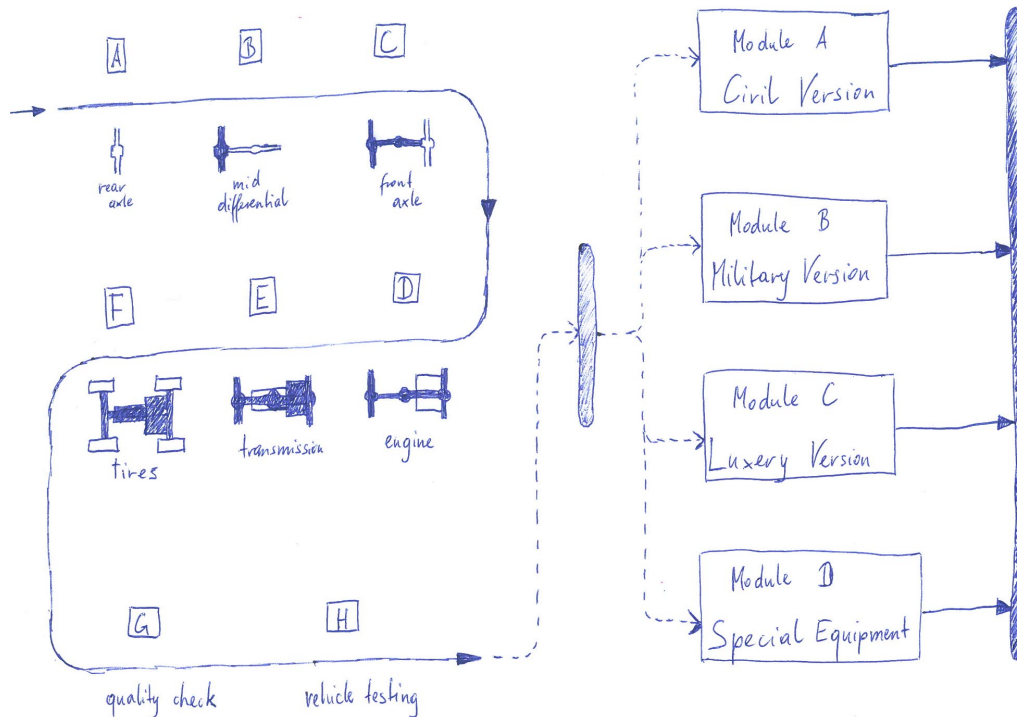 A
B
C
rear
axle
mid
differential
front
axle
F
E
D
tires
transmission
engine
G
H
quality check
vehicle testing
Module A
Civil Version
Module B
Military Version
Module C
Luxery Version
Module D
Special Equipment